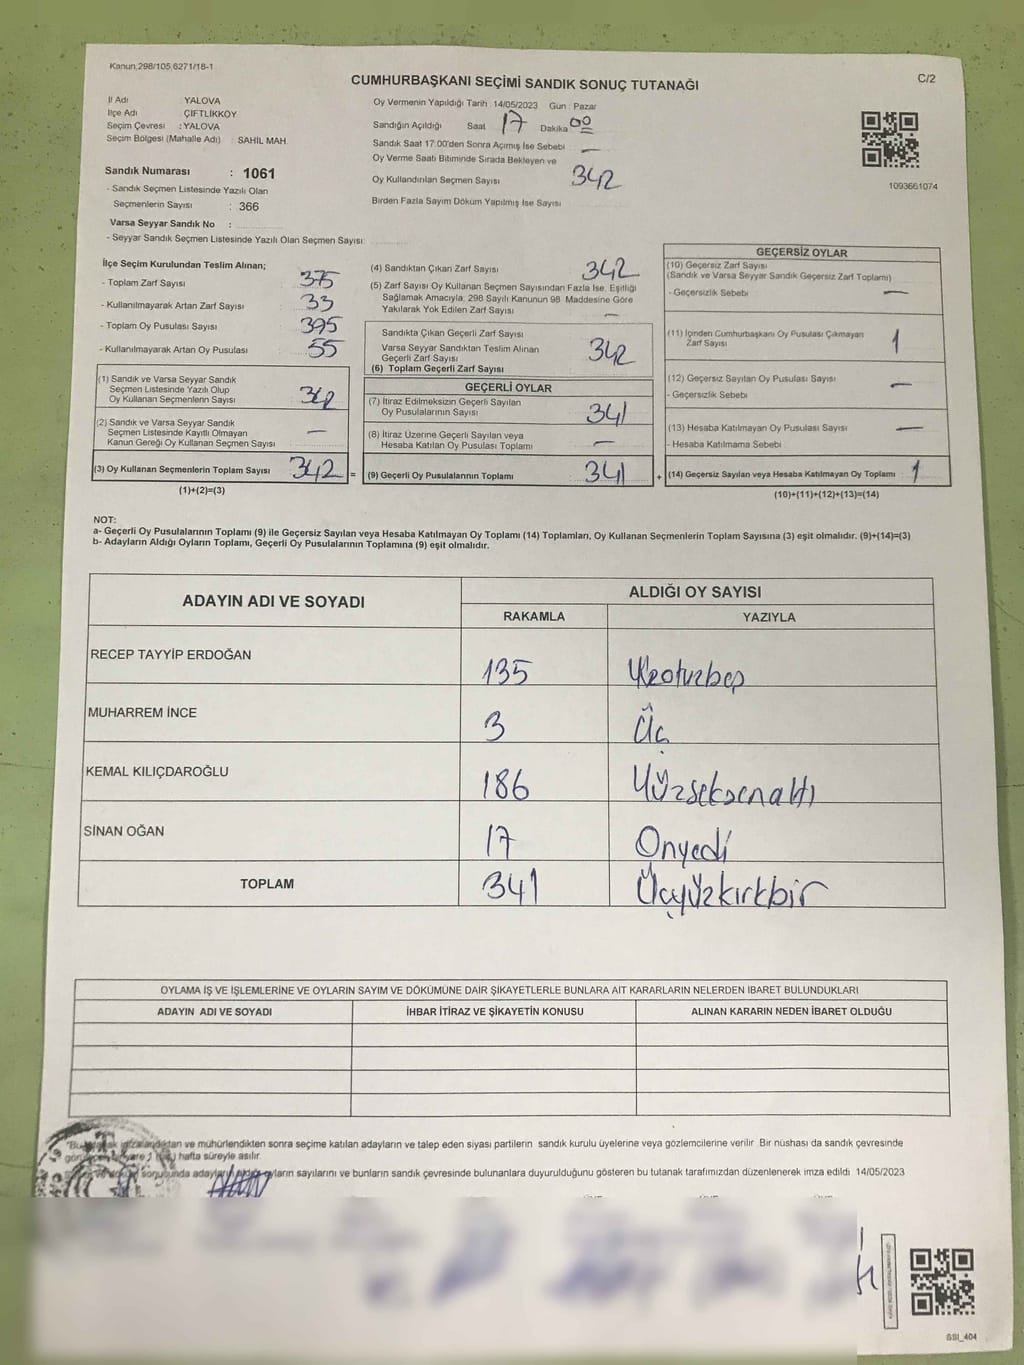 Kanun;298/105,6271/18-1
C/2
CUMHURBAŞKANI SEÇİMİ SANDIK SONUÇ TUTANAĞI
İl Adı YALOVA
İlçe Adı ÇİFTLİKKÖY
Seçim Çevresi : YALOVA
Seçim Bölgesi (Mahalle Adı) : SAHİL MAH.
Sandık Numarası : 1061
- Sandık Seçmen Listesinde Yazılı Olan
Seçmenlerin Sayısı : 366
Varsa Seyyar Sandık No :
- Seyyar Sandık Seçmen Listesinde Yazılı Olan Seçmen Sayısı:
Oy Vermenin Yapıldığı Tarih : 14/05/2023 Gün : Pazar
Sandığın Açıldığı Saat 17 Dakika 00
Sandık Saat 17:00'den Sonra Açımış İse Sebebi —
Oy Verme Saati Bitiminde Sırada Bekleyen ve
Oy Kullandırılan Seçmen Sayısı 342
Birden Fazla Sayım Döküm Yapılmış İse Sayısı
1093661074
İlçe Seçim Kurulundan Teslim Alınan;
- Toplam Zarf Sayısı : 375
- Kullanılmayarak Artan Zarf Sayısı : 33
- Toplam Oy Pusulası Sayısı : 395
- Kullanılmayarak Artan Oy Pusulası : 55
(1) Sandık ve Varsa Seyyar Sandık
Seçmen Listesinde Yazılı Olup
Oy Kullanan Seçmenlerin Sayısı 342
(2) Sandık ve Varsa Seyyar Sandık
Seçmen Listesinde Kayıtlı Olmayan
Kanun Gereği Oy Kullanan Seçmen Sayısı —
(3) Oy Kullanan Seçmenlerin Toplam Sayısı 342 =
(1)+(2)=(3)
(4) Sandıktan Çıkan Zarf Sayısı 342
(5) Zarf Sayısı Oy Kullanan Seçmen Sayısından Fazla İse, Eşitliği
Sağlamak Amacıyla, 298 Sayılı Kanunun 98. Maddesine Göre
Yakılarak Yok Edilen Zarf Sayısı —
Sandıkta Çıkan Geçerli Zarf Sayısı
Varsa Seyyar Sandıktan Teslim Alınan
Geçerli Zarf Sayısı 342
(6) Toplam Geçerli Zarf Sayısı
GEÇERLİ OYLAR
(7) İtiraz Edilmeksizin Geçerli Sayılan
Oy Pusulalarının Sayısı 341
(8) İtiraz Üzerine Geçerli Sayılan veya
Hesaba Katılan Oy Pusulası Toplamı —
(9) Geçerli Oy Pusulalarının Toplamı 341 +
GEÇERSİZ OYLAR
(10) Geçersiz Zarf Sayısı
(Sandık ve Varsa Seyyar Sandık Geçersiz Zarf Toplamı)
- Geçersizlik Sebebi —
(11) İçinden Cumhurbaşkanı Oy Pusulası Çıkmayan
Zarf Sayısı 1
(12) Geçersiz Sayılan Oy Pusulası Sayısı —
- Geçersizlik Sebebi
(13) Hesaba Katılmayan Oy Pusulası Sayısı —
- Hesaba Katılmama Sebebi
(14) Geçersiz Sayılan veya Hesaba Katılmayan Oy Toplamı 1
(10)+(11)+(12)+(13)=(14)
NOT:
a- Geçerli Oy Pusulalarının Toplamı (9) ile Geçersiz Sayılan veya Hesaba Katılmayan Oy Toplamı (14) Toplamları, Oy Kullanan Seçmenlerin Toplam Sayısına (3) eşit olmalıdır. (9)+(14)=(3)
b- Adayların Aldığı Oyların Toplamı, Geçerli Oy Pusulalarının Toplamına (9) eşit olmalıdır.
ADAYIN ADI VE SOYADI ALDIĞI OY SAYISI
RAKAMLA YAZIYLA
RECEP TAYYİP ERDOĞAN 135 Yüzotuzbeş
MUHARREM İNCE 3 Üç
KEMAL KILIÇDAROĞLU 186 Yüzseksenaltı
SİNAN OĞAN 17 Onyedi
TOPLAM 341 Üçyüzkırkbir
OYLAMA İŞ VE İŞLEMLERİNE VE OYLARIN SAYIM VE DÖKÜMÜNE DAİR ŞİKAYETLERLE BUNLARA AİT KARARLARIN NELERDEN İBARET BULUNDUKLARI
ADAYIN ADI VE SOYADI İHBAR İTİRAZ VE ŞİKAYETİN KONUSU ALINAN KARARIN NEDEN İBARET OLDUĞU
ve mühürlendikten sonra seçime katılan adayların ve talep eden siyasi partilerin sandık kurulu üyelerine veya gözlemcilerine verilir. Bir nüshası da sandık çevresinde
hafta süreyle asılır.
oyların sayılarını ve bunların sandık çevresinde bulunanlara duyurulduğunu gösteren bu tutanak tarafımızdan düzenlenerek imza edildi. 14/05/2023
SSI_404